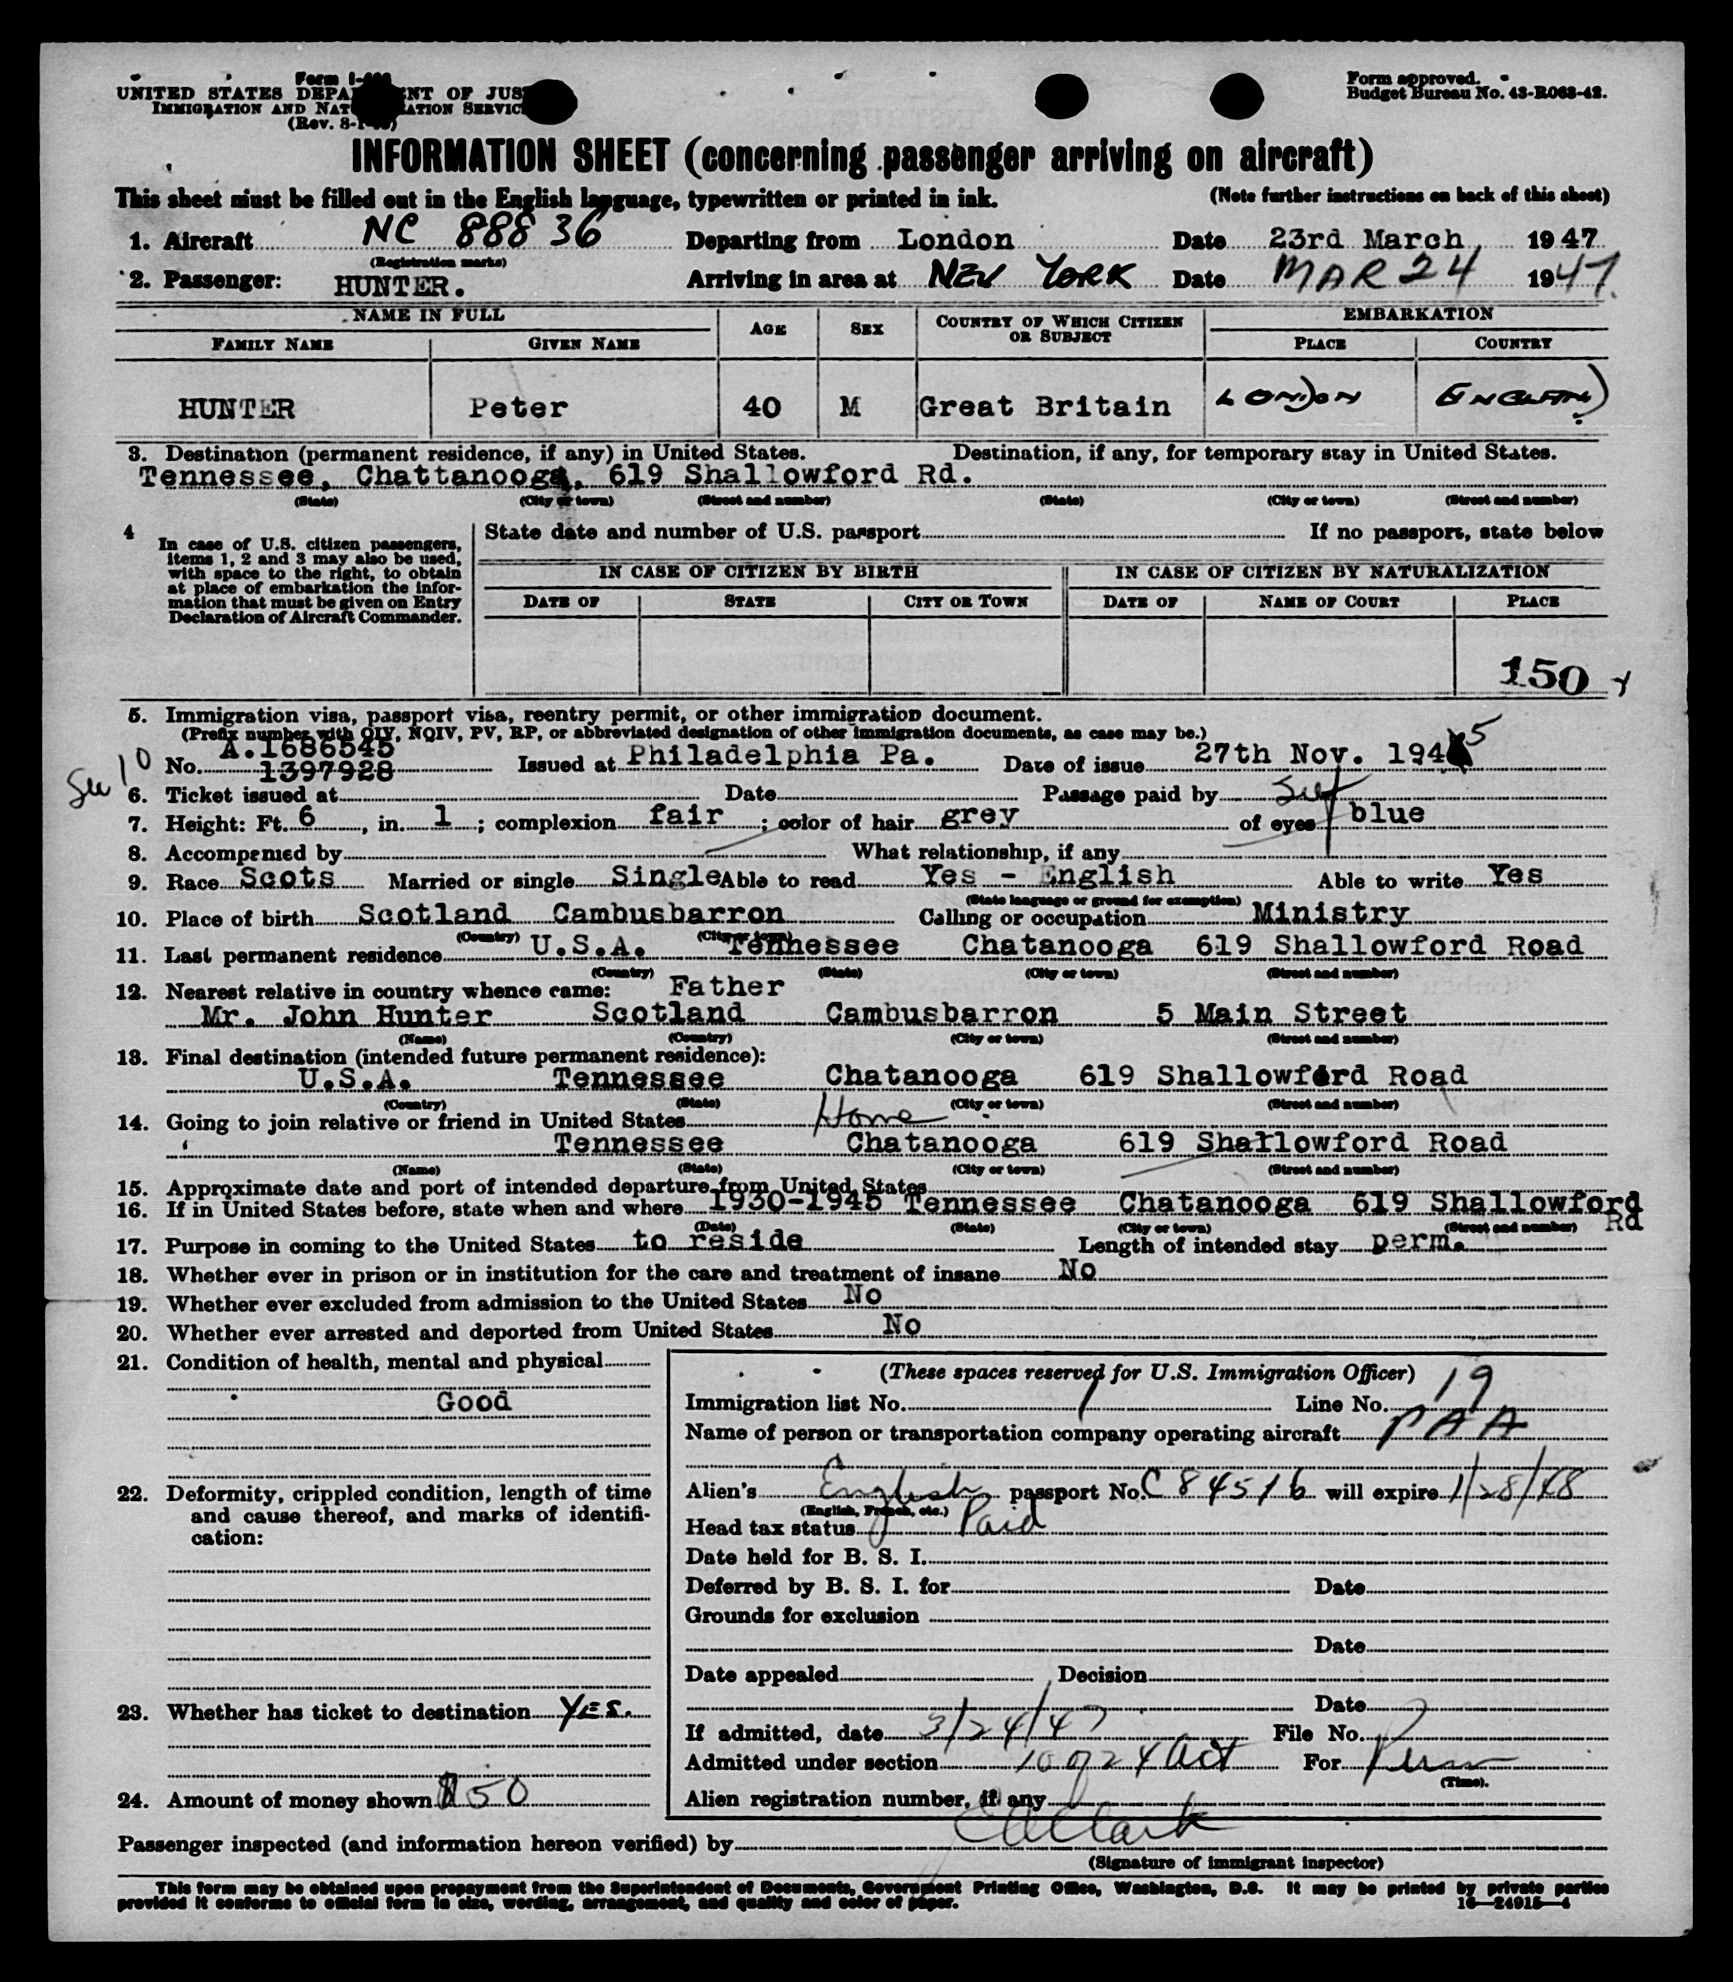 UNITED STATES DEPARTMENT OF JUSTICE
IMMIGRATION AND NATURALIZATION SERVICE
(Rev. 8-1-
Form approved.
Budget Bureau No. 43-R063-42.
INFORMATION SHEET (concerning passenger arriving on aircraft)
This sheet must be filled out in the English language, typewritten or printed in ink. (Note further instructions on back of this sheet)
1. Aircraft NC 88836 Departing from London Date 23rd March, 1947
(Registration marks)
2. Passenger: HUNTER. Arriving in area at NEW YORK Date MAR 24 1947
NAME IN FULL AGE SEX COUNTRY OF WHICH CITIZEN OR SUBJECT EMBARKATION
FAMILY NAME GIVEN NAME PLACE COUNTRY
HUNTER Peter 40 M Great Britain LONDON ENGLAND
3. Destination (permanent residence, if any) in United States. Destination, if any, for temporary stay in United States.
Tennessee, Chattanooga, 619 Shallowford Rd.
(State) (City or town) (Street and number) (State) (City or town) (Street and number)
4 In case of U.S. citizen passengers, items 1, 2 and 3 may also be used, with space to the right, to obtain at place of embarkation the information that must be given on Entry Declaration of Aircraft Commander.
State date and number of U.S. passport If no passport, state below
IN CASE OF CITIZEN BY BIRTH IN CASE OF CITIZEN BY NATURALIZATION
DATE OF STATE CITY OR TOWN DATE OF NAME OF COURT PLACE
150
5. Immigration visa, passport visa, reentry permit, or other immigration document.
(Prefix number with QIV, NQIV, PV, RP, or abbreviated designation of other immigration documents, as case may be.)
A.1686545
No. 1397928 Issued at Philadelphia Pa. Date of issue 27th Nov. 1945
See 10
6. Ticket issued at Date Passage paid by Self
7. Height: Ft. 6, in. 1; complexion fair; color of hair grey of eyes blue
8. Accompanied by What relationship, if any
9. Race Scots Married or single Single Able to read Yes - English Able to write Yes
(State language or ground for exemption)
10. Place of birth Scotland Cambusbarron Calling or occupation Ministry
(Country) (City or town)
11. Last permanent residence U.S.A. Tennessee Chatanooga 619 Shallowford Road
(Country) (State) (City or town) (Street and number)
12. Nearest relative in country whence came: Father
Mr. John Hunter Scotland Cambusbarron 5 Main Street
(Name) (Country) (City or town) (Street and number)
13. Final destination (intended future permanent residence):
U.S.A. Tennessee Chatanooga 619 Shallowford Road
(Country) (State) (City or town) (Street and number)
14. Going to join relative or friend in United States Home
Tennessee Chatanooga 619 Shallowford Road
(Name) (State) (City or town) (Street and number)
15. Approximate date and port of intended departure from United States
16. If in United States before, state when and where 1930-1945 Tennessee Chatanooga 619 Shallowford Rd
(Date) (State) (City or town) (Street and number)
17. Purpose in coming to the United States to reside Length of intended stay perm.
18. Whether ever in prison or in institution for the care and treatment of insane No
19. Whether ever excluded from admission to the United States No
20. Whether ever arrested and deported from United States No
21. Condition of health, mental and physical
Good
22. Deformity, crippled condition, length of time
and cause thereof, and marks of identifi-
cation:
23. Whether has ticket to destination YES.
24. Amount of money shown $50
(These spaces reserved for U.S. Immigration Officer)
Immigration list No. 1 Line No. 19
Name of person or transportation company operating aircraft PAA
Alien's English passport No. C 84516 will expire 1/28/48
(English, French, etc.)
Head tax status Paid
Date held for B. S. I.
Deferred by B. S. I. for Date
Grounds for exclusion
Date
Date appealed Decision
Date
If admitted, date 3/24/47 File No.
Admitted under section 10 of 24 Act For Perm
(Time).
Alien registration number, if any
Passenger inspected (and information hereon verified) by Clark
(Signature of immigrant inspector)
This form may be obtained upon prepayment from the Superintendent of Documents, Government Printing Office, Washington, D.C. It may be printed by private parties
provided it conforms to official form in size, wording, arrangement, and quality and color of paper. 16—24915-4